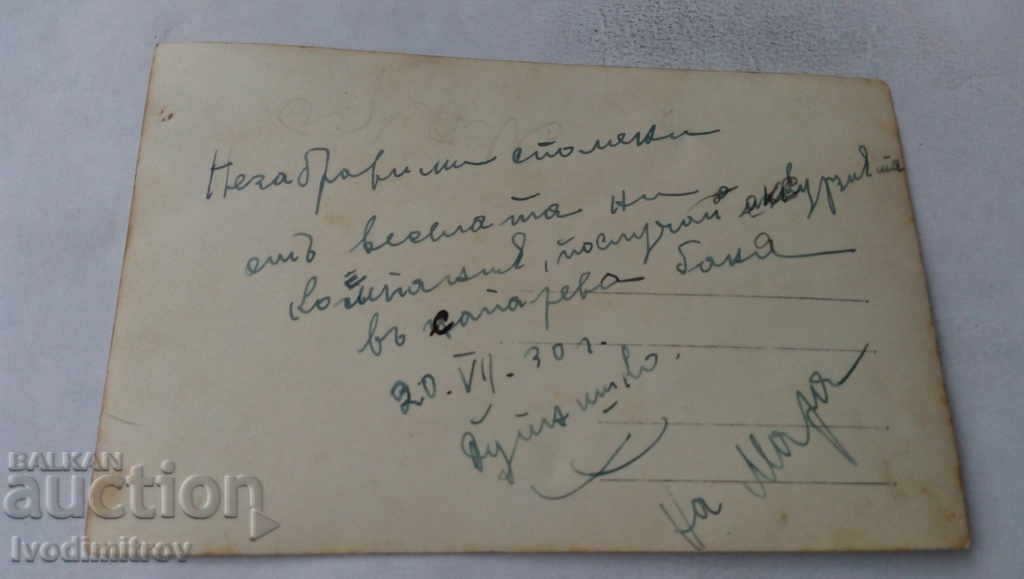 Незабравими спомени
отъ веселата ни
компания, послучай екскурзията
въ Сапарева баня
20. VII. 30 г.
на Мара
BALKAN
auction
Ivodimitrov